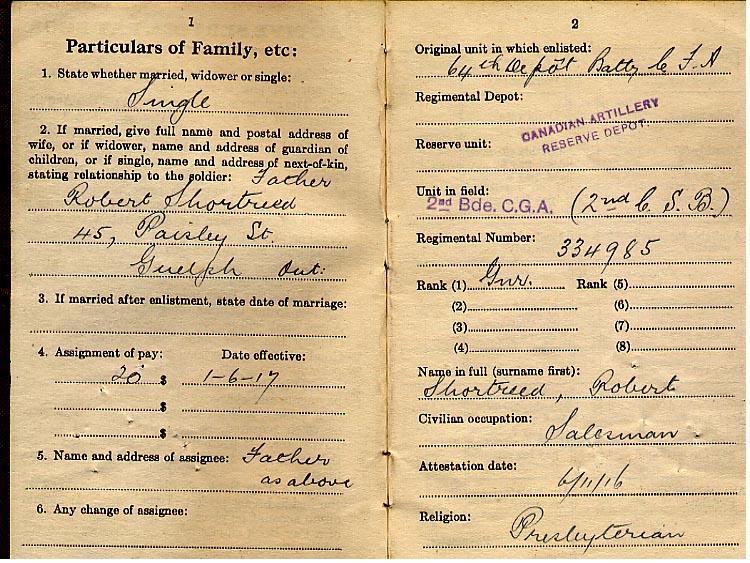 1
Particulars of Family, etc:
1. State whether married, widower or single:
Single
2. If married, give full name and postal address of
wife, or if widower, name and address of guardian of
children, or if single, name and address of next-of-kin,
stating relationship to the soldier: Father
Robert Shortreed
45, Paisley St.
Guelph Ont:
3. If married after enlistment, state date of marriage:
4. Assignment of pay: Date effective:
20 $ 1-6-17
$
$
5. Name and address of assignee: Father
as above
6. Any change of assignee:
2
Original unit in which enlisted:
64th Depôt Batty C F A
Regimental Depot:
CANADIAN ARTILLERY
RESERVE DEPOT.
Reserve unit:
Unit in field:
2nd Bde. C.G.A. (2nd C. S. B.)
Regimental Number:
334985
Rank (1) Gnr. Rank (5)
(2) (6)
(3) (7)
(4) (8)
Name in full (surname first):
Shortreed, Robert
Civilian occupation:
Salesman
Attestation date:
6/11/16
Religion:
Presbyterian